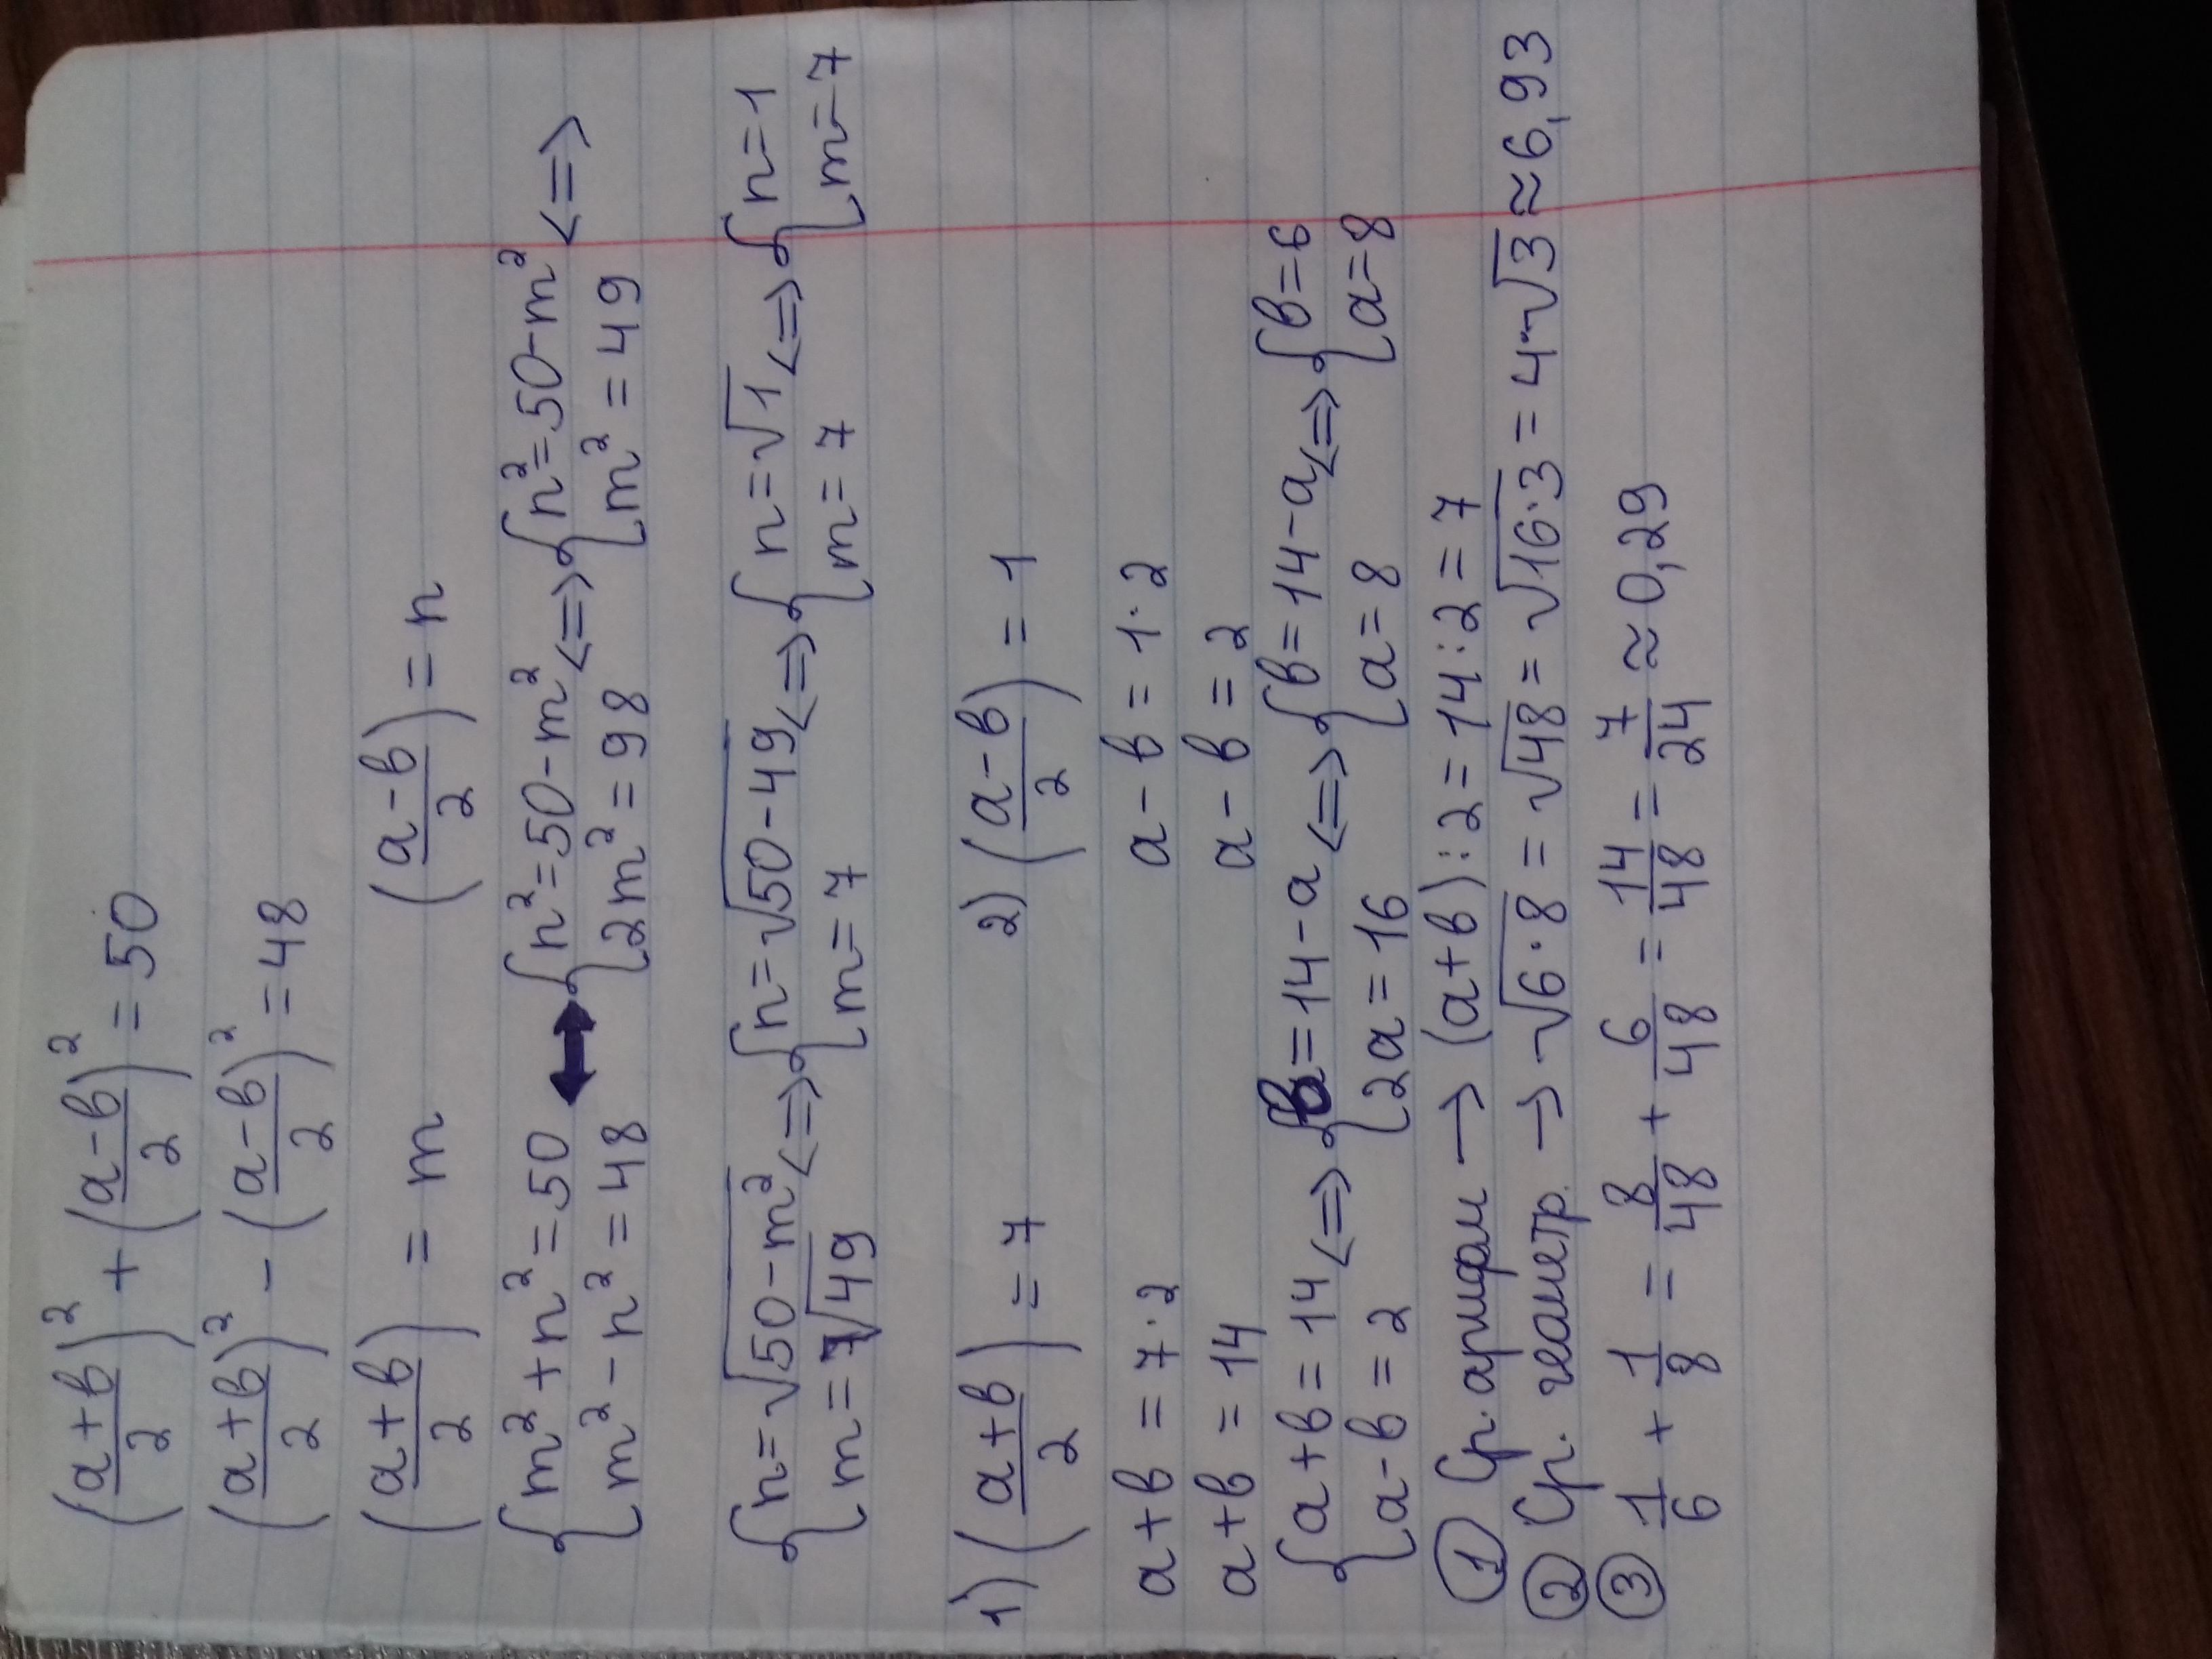 (a+b/2)² + (a-b/2)² = 50
(a+b/2)² - (a-b/2)² = 48
(a+b/2) = m (a-b/2) = n
{m²+n²=50 ↔ {n²=50-m² <=> {n²=50-m² <=>
{m²-n²=48 {2m²=98 {m²=49
{n=√50-m² <=> {n=√50-49 <=> {n=√1 <=> {n=1
{m=√49 {m=7 {m=7 {m=7
1) (a+b/2) = 7 2) (a-b/2) = 1
a+b = 7·2 a-b = 1·2
a+b = 14 a-b = 2
{a+b=14 <=> {b=14-a <=> {b=14-a <=> {b=6
{a-b=2 {2a=16 {a=8 {a=8
① Ср. арифм → (a+b):2=14:2=7
② Ср. геометр. → √6·8 = √48 = √16·3 = 4·√3 ≈ 6,93
③ 1/6 + 1/8 = 8/48 + 6/48 = 14/48 = 7/24 ≈ 0,29